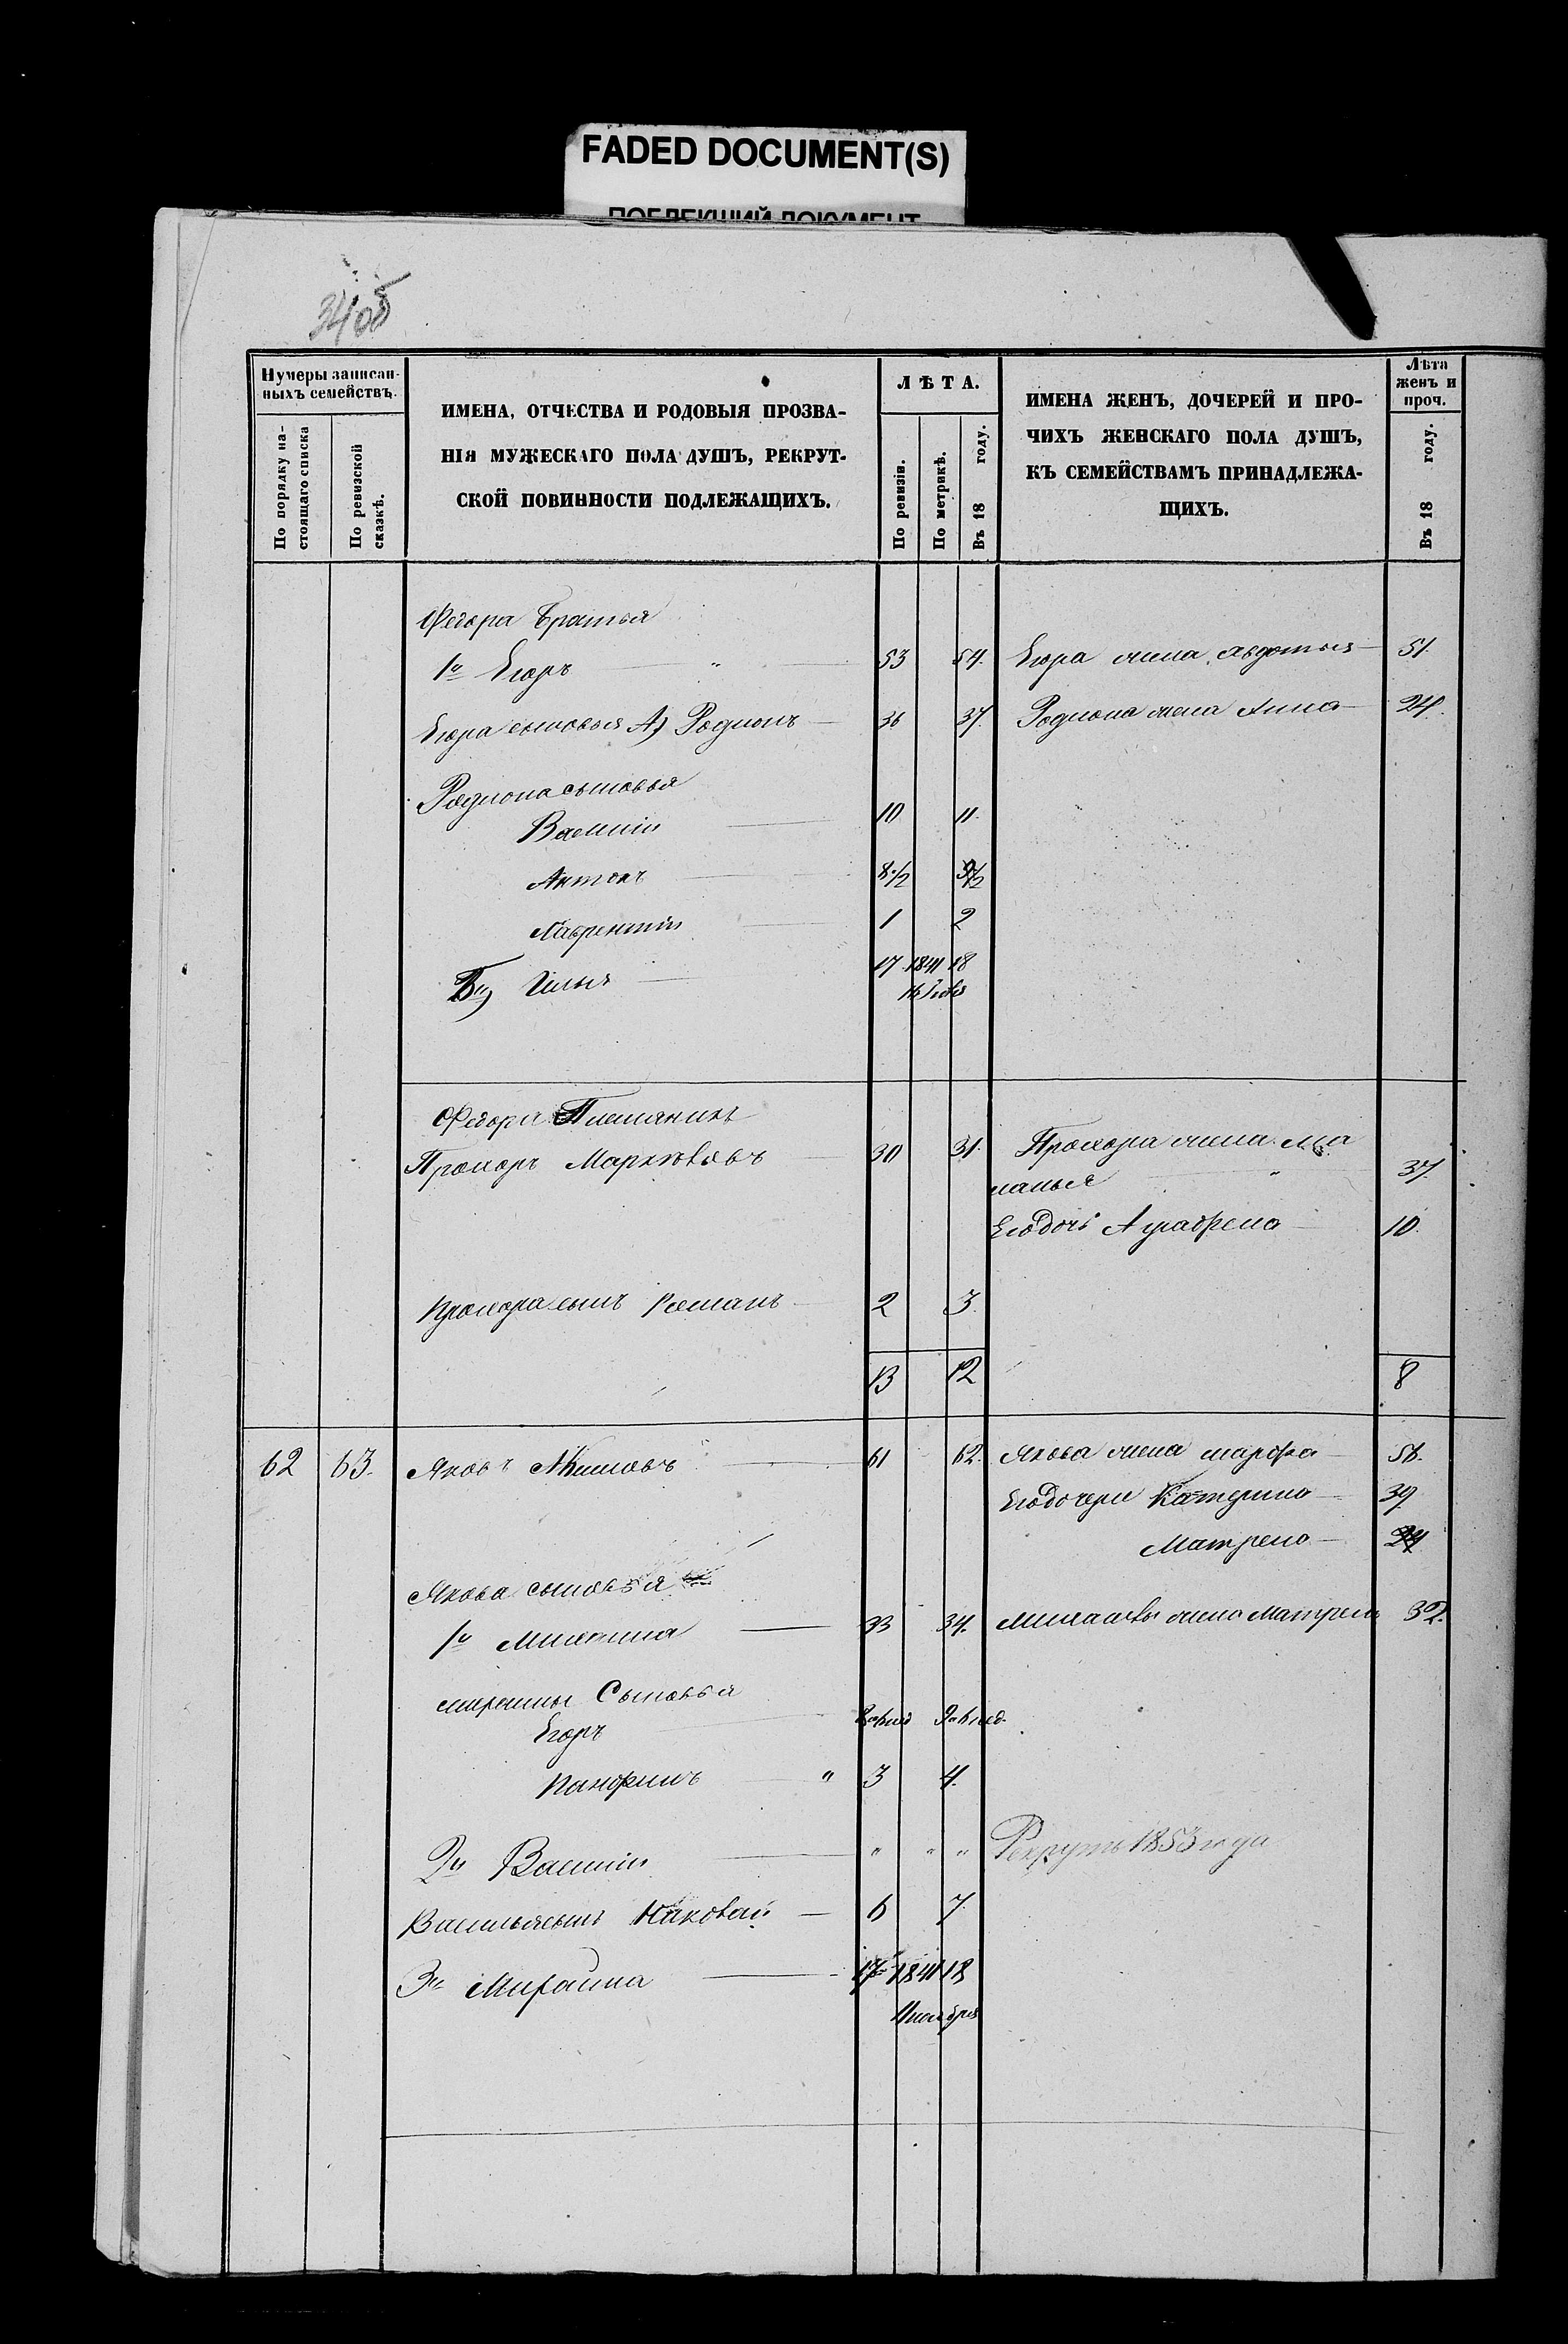 FADED DOCUMENT(S)
ПОБЛЕКШИЙ ДОКУМЕНТ
340б
Нумеры записан-
ныхъ семействъ.
По порядку на-
стоящаго списка
По ревизской
сказкѣ.
ИМЕНА, ОТЧЕСТВА И РОДОВЫЯ ПРОЗВА-
НІЯ МУЖЕСКАГО ПОЛА ДУШЪ, РЕКРУТ-
СКОЙ ПОВИННОСТИ ПОДЛЕЖАЩИХЪ.
ЛѢТА.
По ревизіи.
По метрикѣ.
Въ 18 году.
ИМЕНА ЖЕНЪ, ДОЧЕРЕЙ И ПРО-
ЧИХЪ ЖЕНСКАГО ПОЛА ДУШЪ,
КЪ СЕМЕЙСТВАМЪ ПРИНАДЛЕЖА-
ЩИХЪ.
Лѣта
женъ и
проч.
Въ 18 году.
Федора Братья
1й Егоръ " 53 54. Егора жена Авдотья 51.
Егора сыновья А) Родионъ 36 37. Родиона жена Анна 24.
Родиона сыновья
Василий 10 11.
Антонъ 8 1/2 9 1/2
Лаврентий 1 2
Б) Илья 17 1841 18
16 Iюля
Федора Племяникъ
Прохоръ Марковъ 30 31. Прохора жена Ма
ланья " 37.
Его дочь Аграфена 10.
Прохора сынъ Романъ 2 3.
13 12 8
62 63. Яковъ Акимовъ 61 62. Якова жена марфа 56.
Его дочери Катерина 39.
Матрена
Якова сыновья
1й 33 34. жена Матрена 32.
Сыновья
Егоръ
Панфилъ " 3 4.
2й Василий " " " Рекрутъ 1853 года
Васильясынъ 6 7.
3й 17 1841 18
ноября